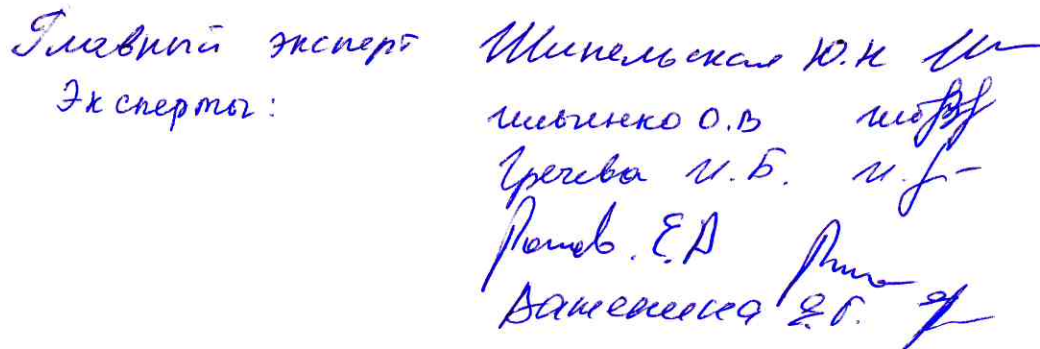 Главный эксперт Шипельская Ю.Н
Эксперты:
Ильченко О.В
Гречева И.Б.
Е.А
Важенина Е.Г.